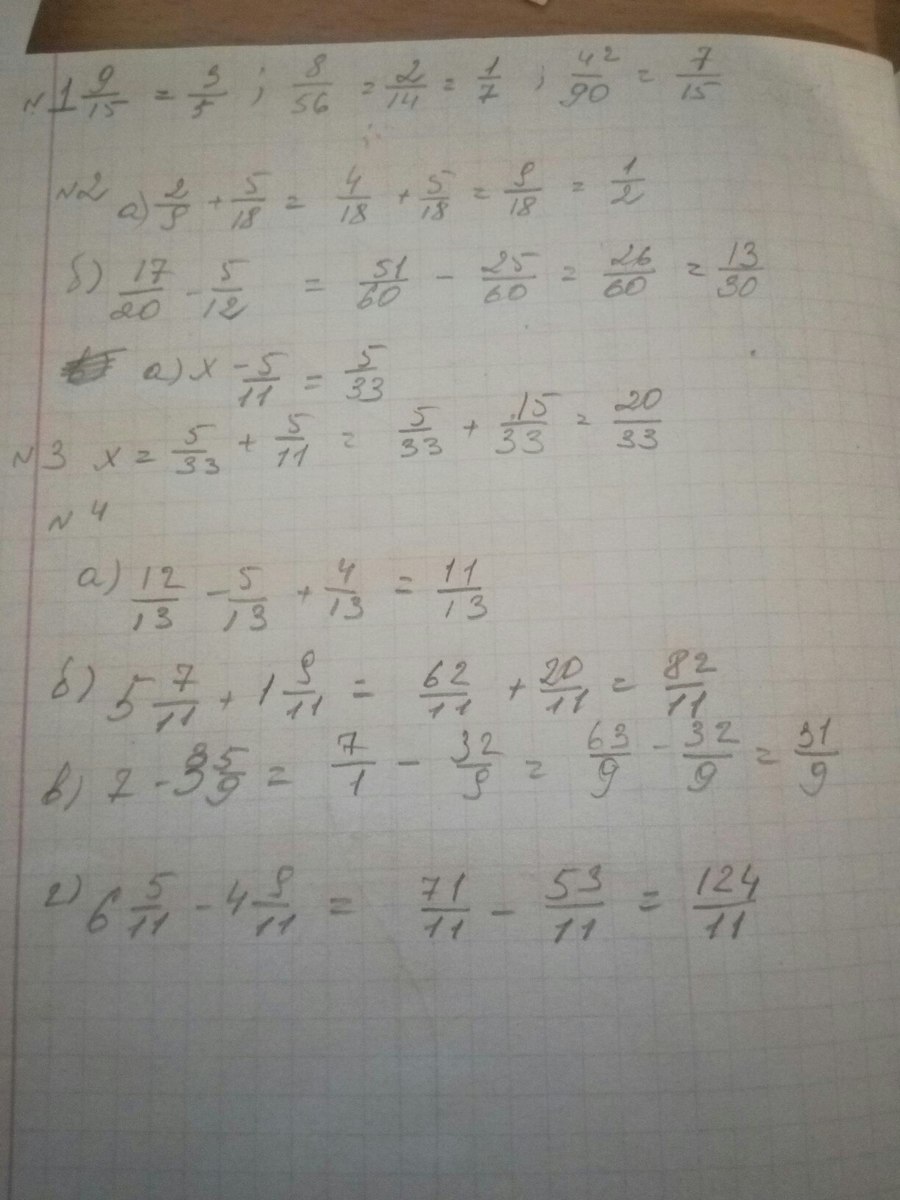 №1 9/15 = 3/5 ; 8/56 = 2/14 = 1/7 ; 42/90 = 7/15
№2 а) 2/9 + 5/18 = 4/18 + 5/18 = 9/18 = 1/2
б) 17/20 - 5/12 = 51/60 - 25/60 = 26/60 = 13/30
а) x - 5/11 = 5/33
№3 x = 5/33 + 5/11 = 5/33 + 15/33 = 20/33
№4
а) 12/13 - 5/13 + 4/13 = 11/13
б) 5 7/11 + 1 9/11 = 62/11 + 20/11 = 82/11
в) 7 - 3 5/9 = 7/1 - 32/9 = 63/9 - 32/9 = 31/9
г) 6 5/11 - 4 9/11 = 71/11 - 53/11 = 124/11